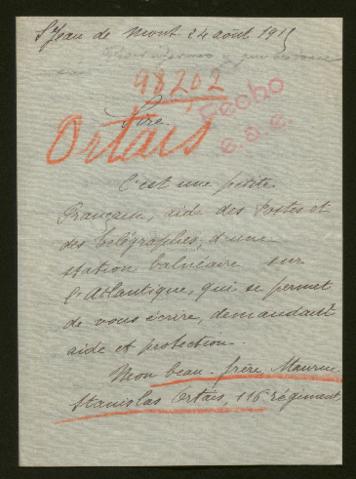 St Jean de Mont 24 août 1915
98202
Fecho
Sire
Ortais
C'est une petite
Française, aide des Postes et
des télégraphes, d'une
station balnéaire sur
l'Atlantique, qui se permet
de vous écrire, demandant
aide et protection.
Mon beau-frère, Maurice
Stanislas Ortais, 116 régiment